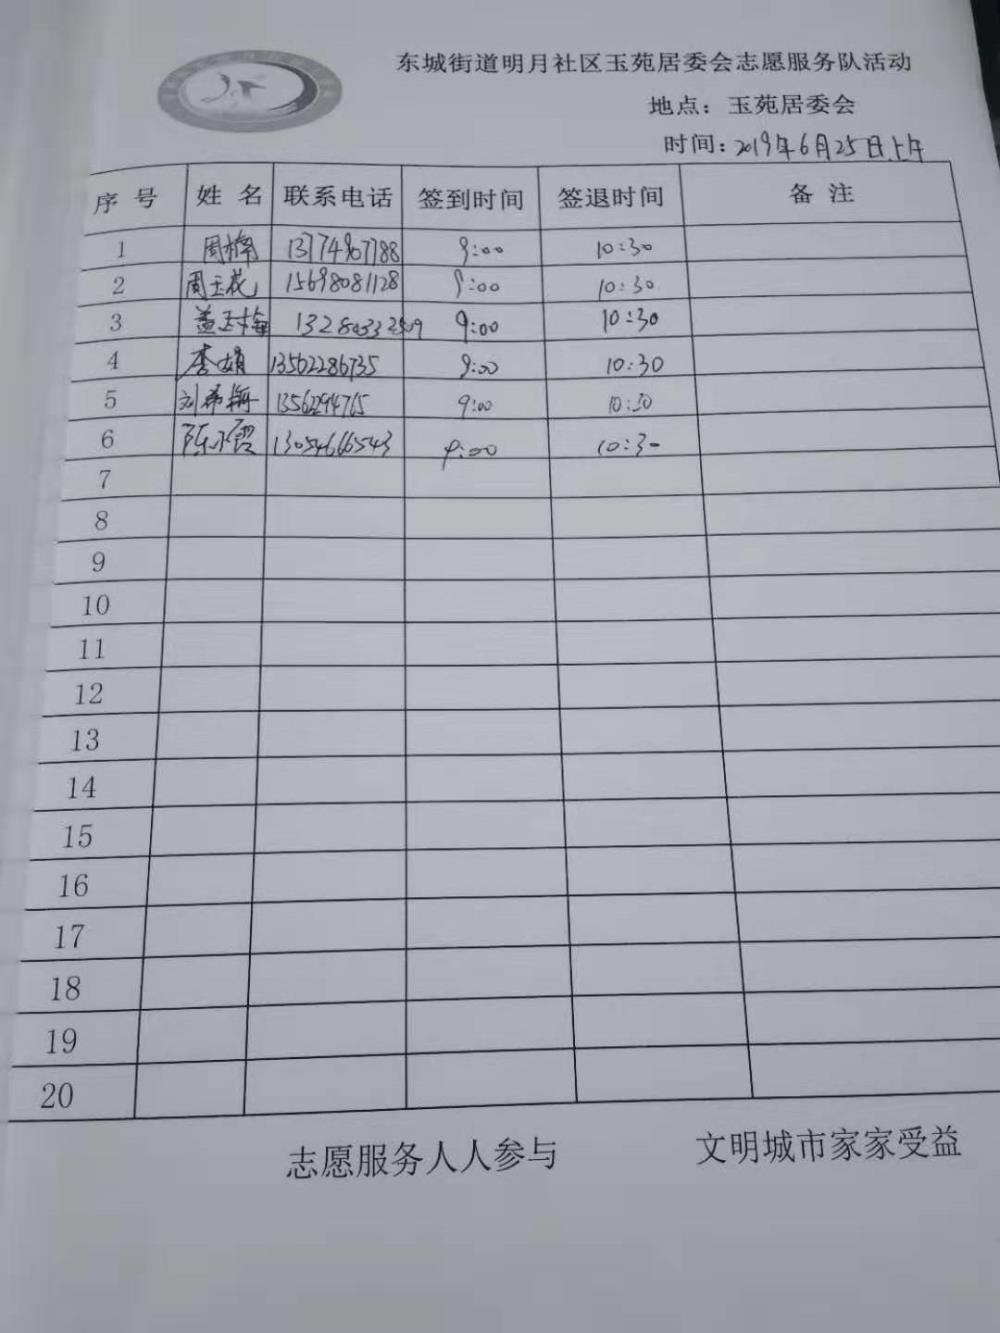 东城街道明月社区玉苑居委会志愿服务队活动
地点：玉苑居委会
时间：2019年6月25日上午
序号 姓名 联系电话 签到时间 签退时间 备注
1 周梅 13774907788 9:00 10:30
2 周玉花 15698081128 9:00 10:30
3 9:00 10:30
4 李娟 13562286735 9:00 10:30
5 刘希梅 13562294765 9:00 10:30
6 陈永霞 13054666543 9:00 10:30
7
8
9
10
11
12
13
14
15
16
17
18
19
20
志愿服务人人参与 文明城市家家受益